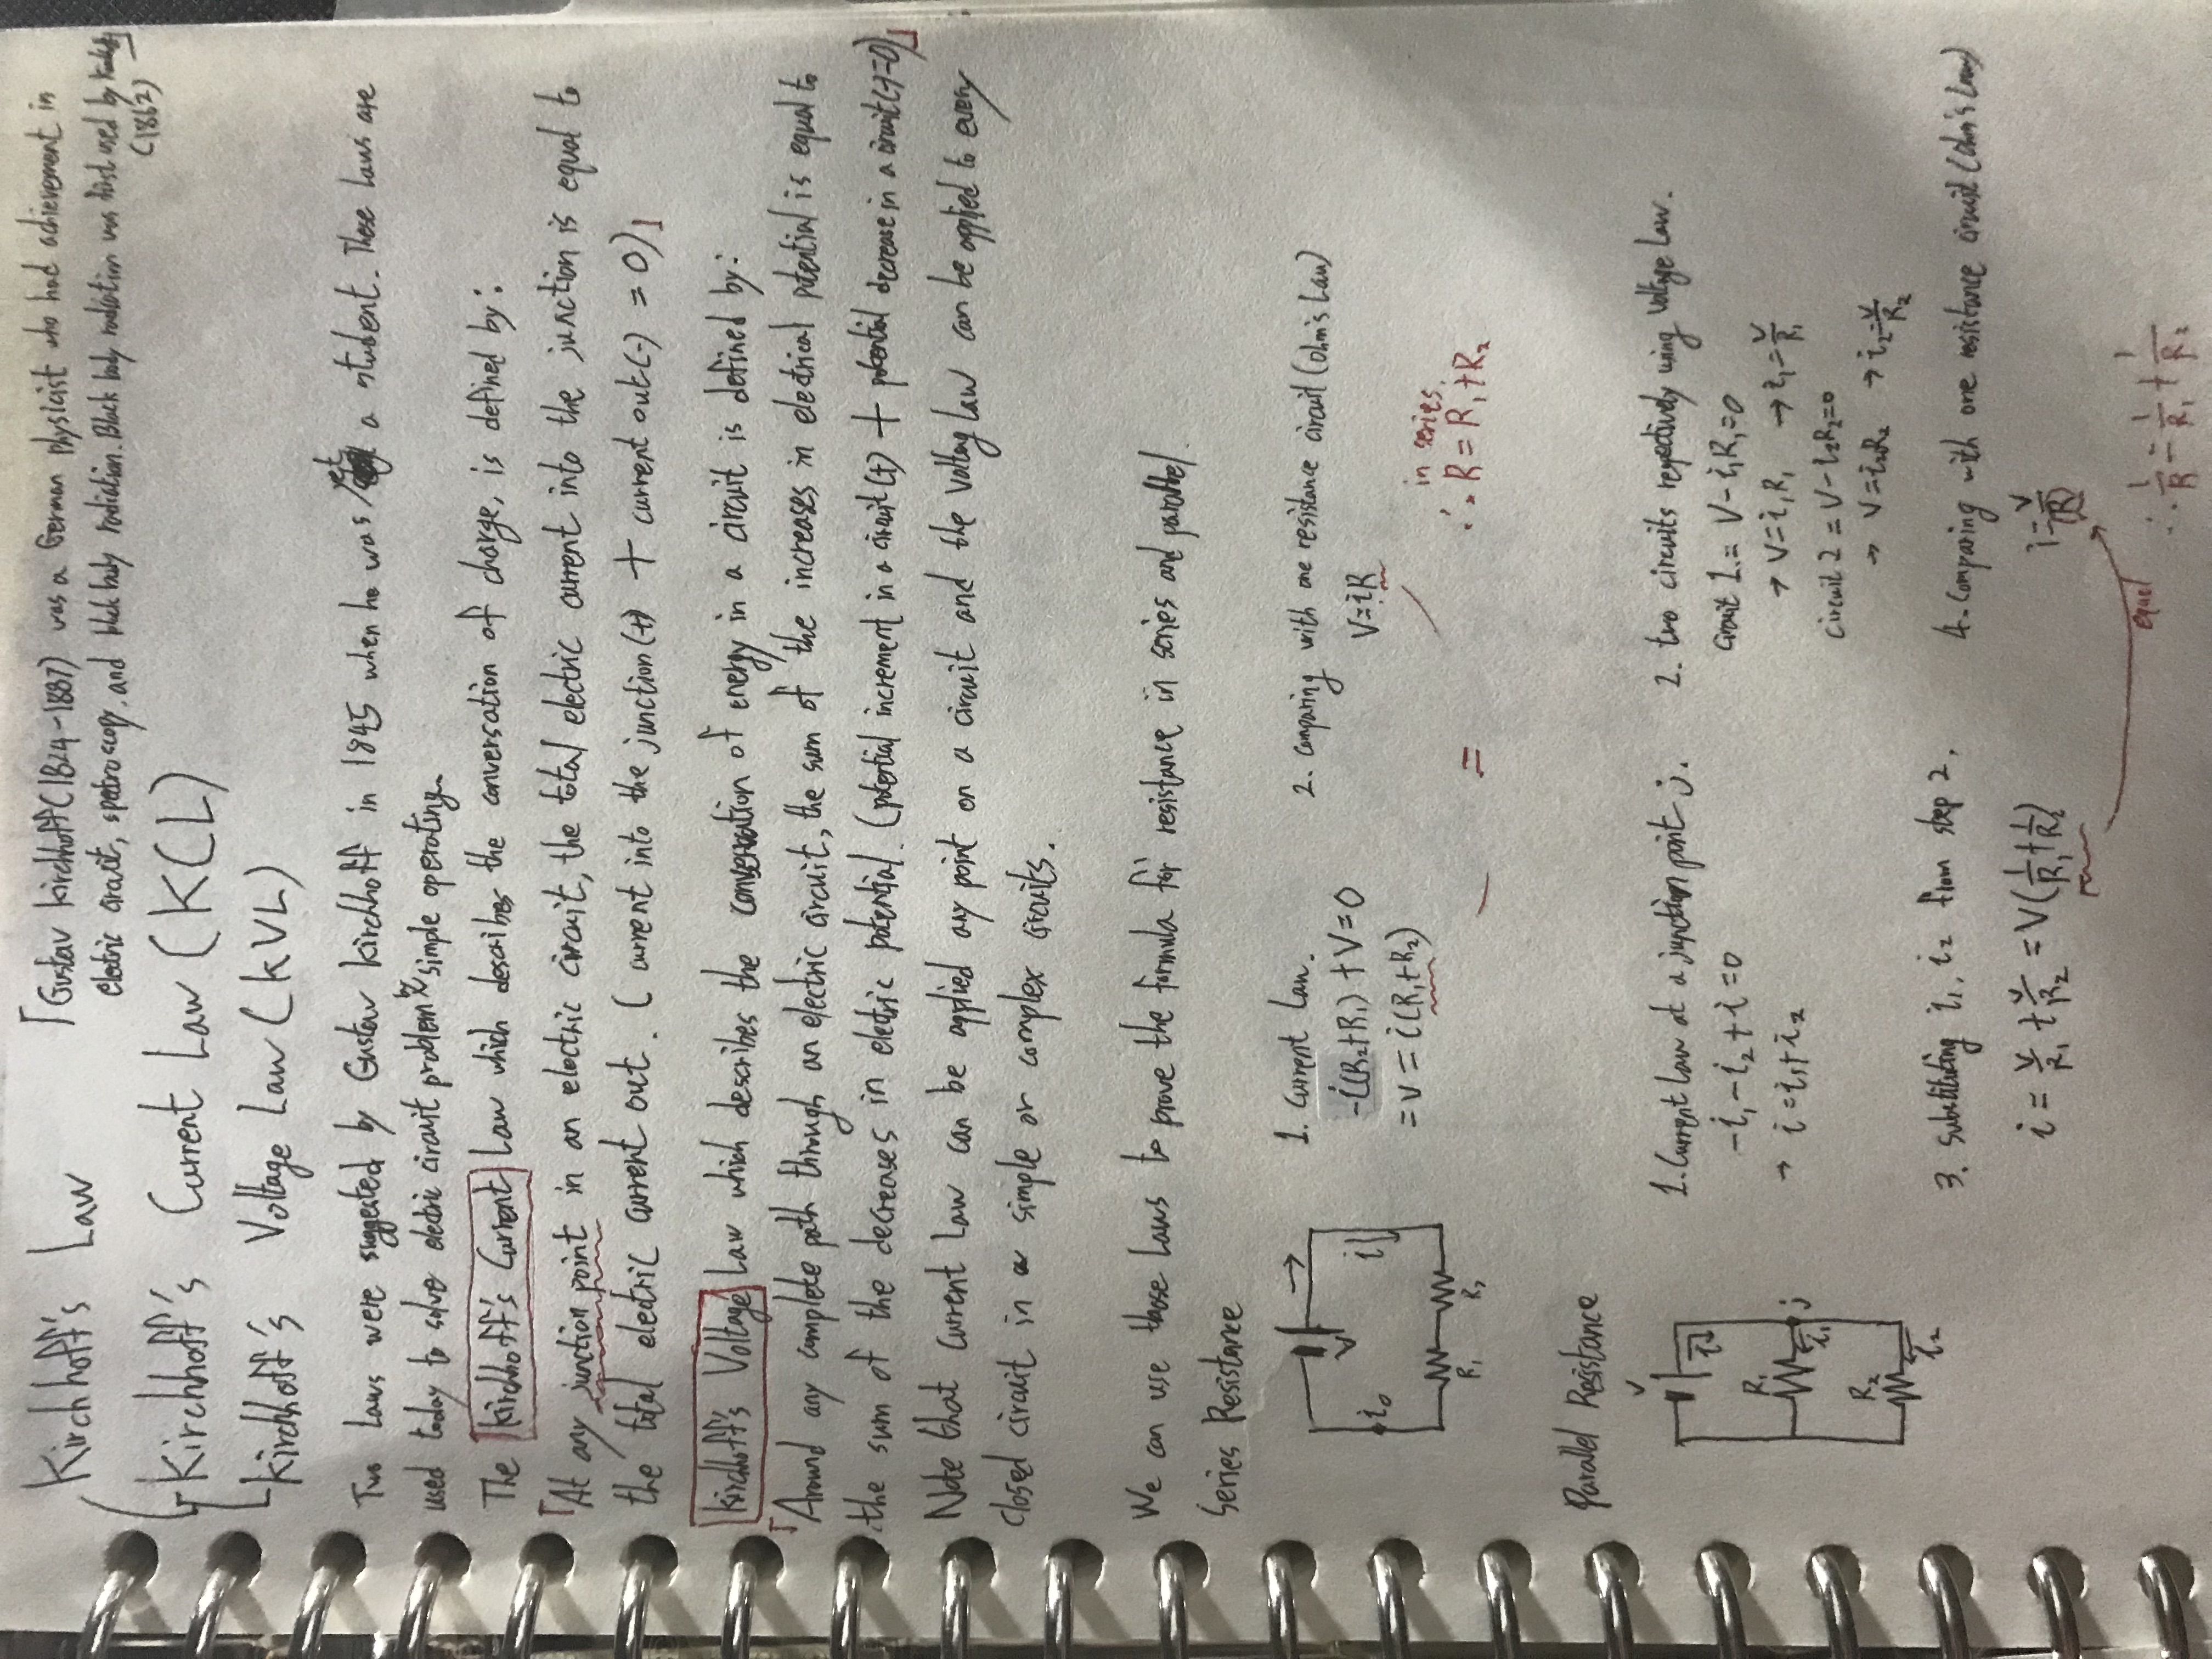 Kirchhoff's Law
「Gustav Kirchhoff(1824-1887) was a German physicist who had achievement in
electric circuit, spetroscopy, and black body radiation. Black body radiation was first used by
(1862)」
Kirchhoff's Current Law (KCL)
Kirchhoff's Voltage Law (KVL)
Two Laws were suggested by Gustav Kirchhoff in 1845 when he was yet a student. These laws are
used today to solve electric circuit problem by simple operating.
The Kirchhoff's Current Law which describes the conversation of charge, is defined by:
「At any junction point in an electric circuit, the total electric current into the junction is equal to
the total electric current out. (current into the junction(+) + current out(-) = 0)」
Kirchhoff's Voltage Law which describes the conversation of energy in a circuit is defined by:
「Around any complete path through an electric circuit, the sum of the increases in electrical potential is equal to
the sum of the decreases in electric potential. (potential increment in a circuit(+) + potential decrease in a circuit(-)=0)」
Note that Current Law can be applied any point on a circuit and the Voltage Law can be applied to every
closed circuit in a simple or complex circuits.
We can use those Laws to prove the formula for resistance in series and parallel.
Series Resistance
V
i
i₀
R₁
R₂
1. Current Law.
-i(R₂+R₁)+V=0
=V=i(R₁+R₂)
2. Comparing with one resistance circuit (Ohm's Law)
V=iR
=
in series.
∴ R=R₁+R₂
Parallel Resistance
V
i
R₁
i₁
j
R₂
i₂
1. Current Law at a junction point j.
-i₁-i₂+i=0
→ i=i₁+i₂
2. two circuits repectively using Voltage Law.
Circuit 1.= V-i₁R₁=0
→ V=i₁R₁ → i₁=V/R₁
Circuit 2 = V-i₂R₂=0
→ V=i₂R₂ → i₂=V/R₂
3. Substituting i₁, i₂ from step 2,
i = V/R₁ + V/R₂ = V(1/R₁+1/R₂)
4. Comparing with one resistance circuit (Ohm's Law)
i=V/R
equal
∴ 1/R = 1/R₁ + 1/R₂